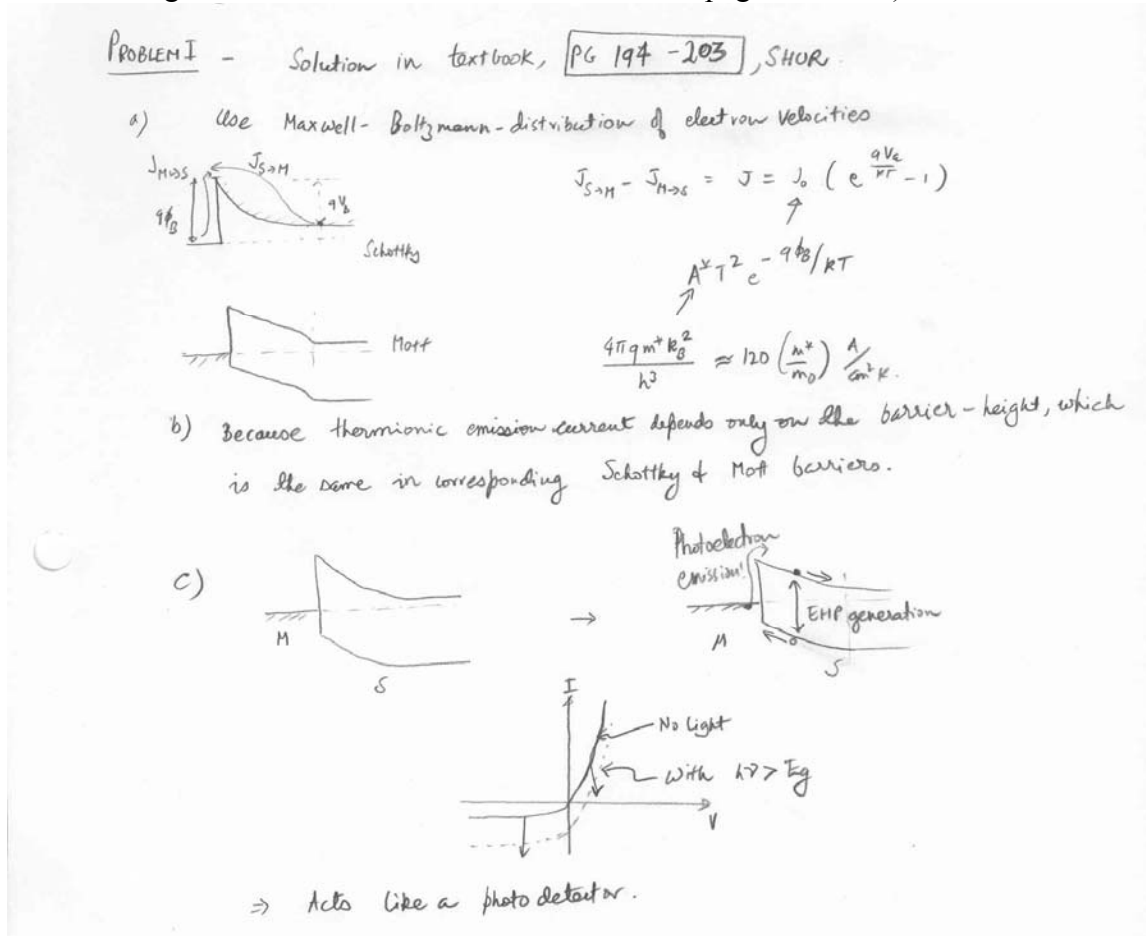 PROBLEM I - Solution in textbook, PG 194 - 203, SHUR.
a) Use Maxwell-Boltzmann-distribution of electron velocities
J_{M→S} J_{S→M}
qϕ_B
Schottky
J_{S→M} - J_{M→S} = J = J_0 ( e^{qV_a/kT} - 1 )
A* T^2 e^{-qϕ_B/kT}
Mott
4π q m* k_B^2 / h^3 ≈ 120 (m*/m_0) A/cm^2 K.
b) Because thermionic emission current depends only on the barrier-height, which
is the same in corresponding Schottky & Mott barriers.
c)
M
S
→
Photoelectron
emission!
EHP generation
M
S
I
No light
With hν > Eg
V
⇒ Acts like a photodetector.